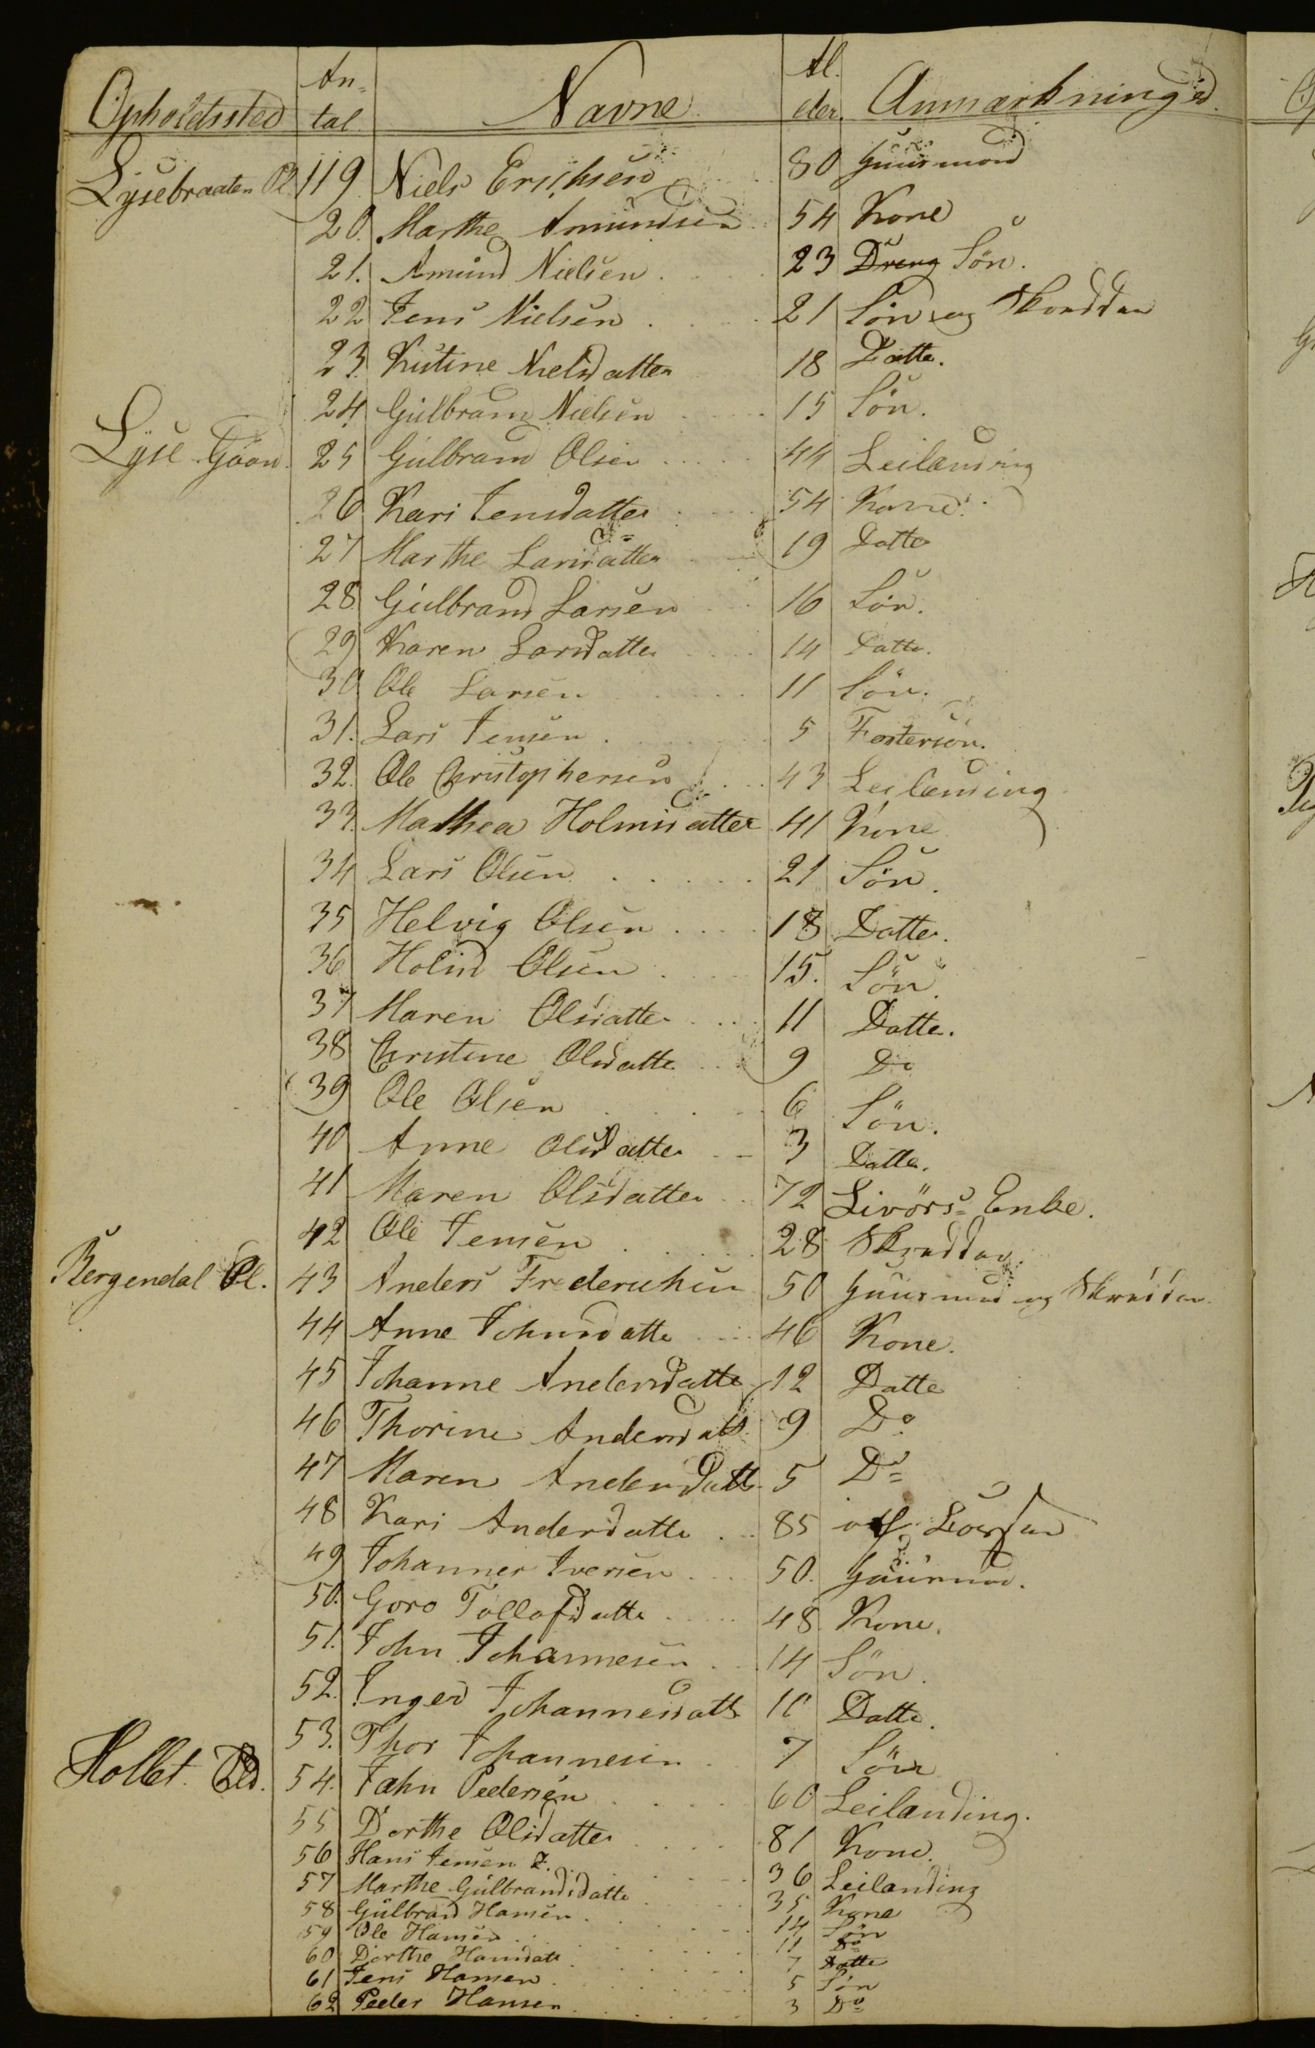 Opholdssted An- tal Navne Al- der. Anmærkninger.
Lysebraaten Pl 119 Niels Erichsen 80 Huusmand
20. Marthe Amundsen 54 Kone
21. Amund Nielsen 23 Dreng Søn.
22 Jens Nielsen 21 Søn og Skrædder
23. Kistine Nielsdatter 18 Datte.
24 Gulbrand Nielsen 15 Søn.
Lyse Gaard 25 Gulbrand Olsen 44 Leilænding
26 Kari Jensdatter 54 Kone.
27 Marthe Larsdatter 19 Datte
28 Gulbrand Larsen 16 Søn.
29 Karen Larsdatter 14 Datte.
30 Ole Larsen 11 Søn.
31. Lars Jensen 5 Fostersøn.
32. Ole Christophersen 43 Leilænding
33. Mathea Holmsdatter 41 Kone
34 Lars Olsen 21 Søn.
35 Helvig Olsen 18 Datter.
36 Holm Olsen 15. Søn.
37 Maren Olsdatter 11 Datte.
38 Christine Olsdatte 9 Do
39 Ole Olsen 6 Søn.
40 Anne Olsdatter 3 Datte.
41 Maren Olsdatter 72 Livörs- Enke.
42 Ole Jensen 28 Skrædder
Bergendal Pl. 43 Anders Frederichsen 50 Huusmand og Skrædder
44 Anne Johnsdatte 46 Kone.
45 Johanne Andersdatte 12 Datte
46 Thorine Andersdatt. 9 Do
47 Maren Andersdatt. 5 Do
48 Kari Andersdatte 85
49 Johannes Iversen 50. Huusmand.
50. Goro Tollofsdatte 48 Kone.
51. John Johannesen 14 Søn.
52. Inger Johannesdatt. 10 Datte.
53. Thor Johannesen 7 Søn
Hollet 54. Jahn Pedersen 60 Leilænding.
55 Dorthe Olsdatter 81 Kone.
56 Hans Jensen 36 Leilænding
57 Marthe Gulbrandsdatte 35 Kone
58 Gulbrand Hansen 14 Søn
59 Ole Hansen 11 Do
60 Dorthe Hansdatt 7 Datte
61 Jens Hansen 5 Søn
62 Peder Hansen 3 Do